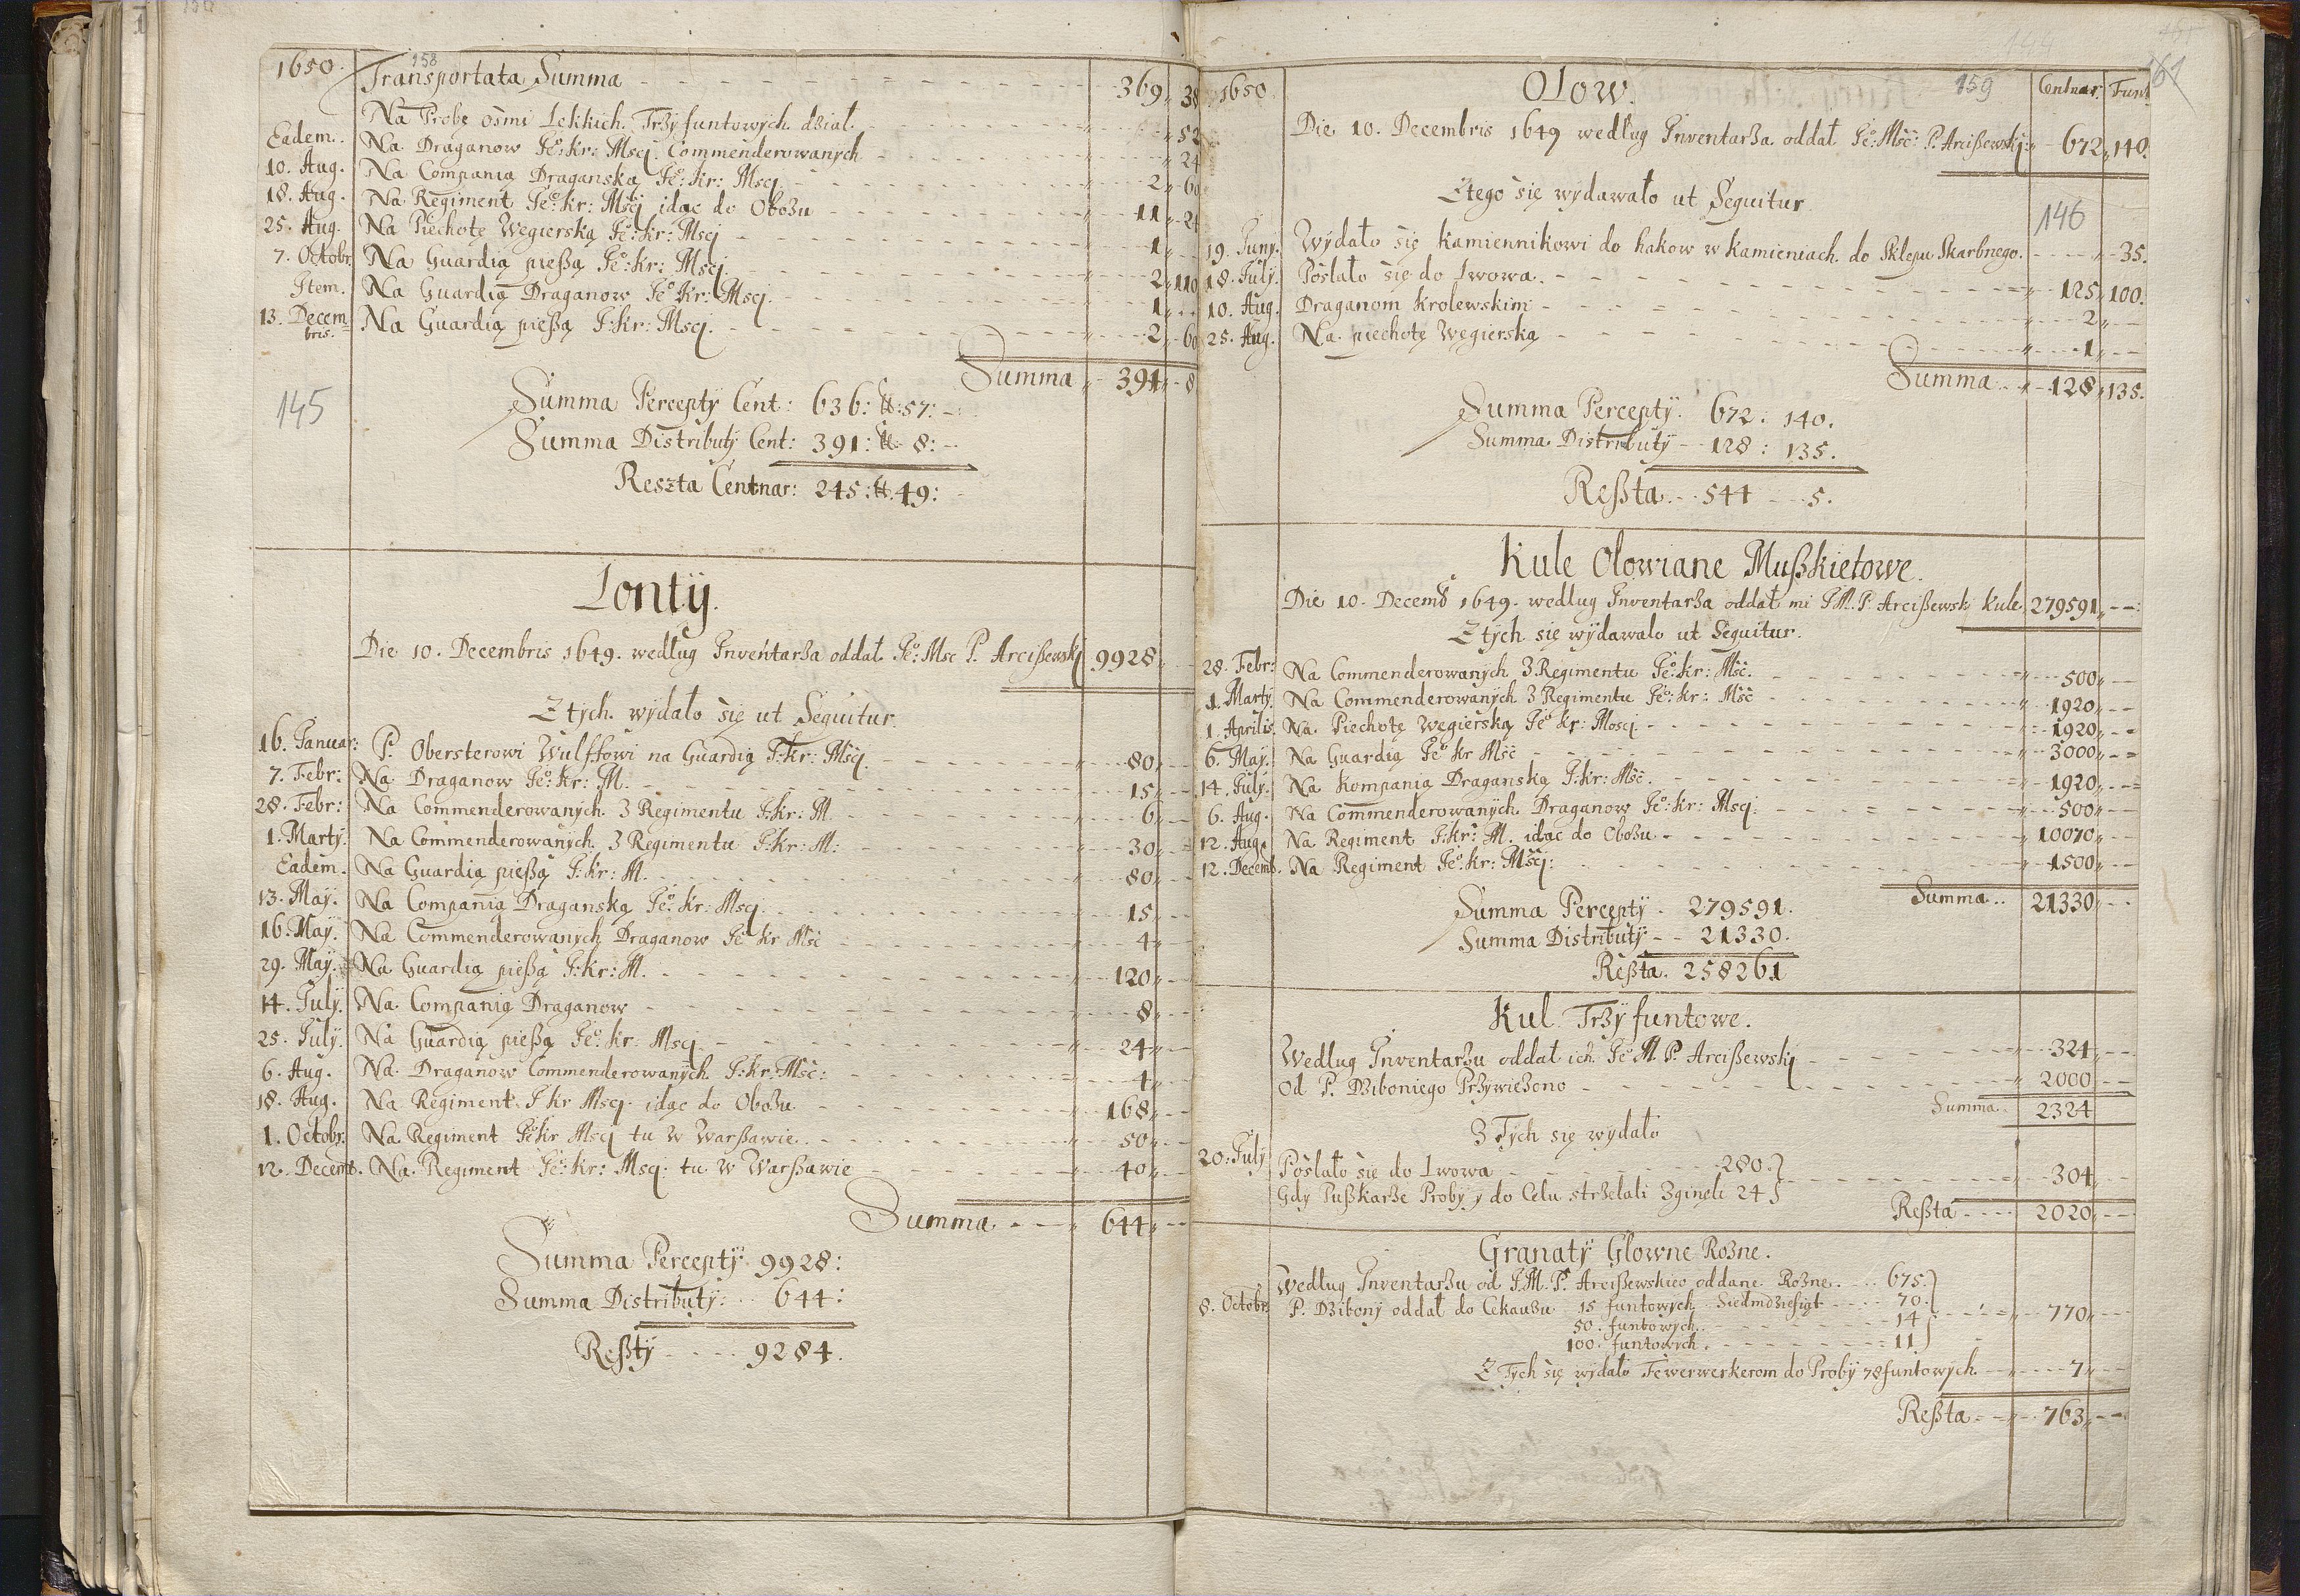 158
1650. Transportata Summa 369 38
Na Probę osmi Lekkich Trzyfuntowych dział. 52
Eadem. Na Draganow Je͠o: Kr: Mscj. Commenderowanych 24
10. Aug. Na Companią Draganską Je͠o: Kr: Mscj 2 60
18. Aug. Na Regiment Je͠o: Kr: Mscj idąc do Obozu 11 24
25. Aug. Na Piechotę Węgierską Je͠o: Kr: Mscj 1
7. Octobr. Na Guardią pießą Je͠o: Kr: Mscj. 2 110
Item. Na Guardią Draganow Je͠o Kr: Mscj. 1
13. Decembris. Na Guardią pießą J: Kr: Mscj. 2 60
Summa 391 8
145
Summa Percepty Cent: 636: ℔: 57:
Summa Distributy Cent: 391: ℔ 8:
Reszta Centnar: 245: ℔. 49:
Lonty.
Die 10. Decembris 1649. według Inventarza oddał Je͠o: Msc P. Arcißewskj 9928
Z tych wydało się ut Sequitur.
16. Januar: P. Obersterowi Wulffowi na Guardią J: Kr: Mscj. 80
7. Febr: Na Draganow Je͠o: Kr: M. 15
28. Febr: Na Commenderowanych 3 Regimentu J: Kr: M. 6
1. Marty. Na Commenderowanych 3 Regimentu J: Kr: M: 30
Eadem. Na Guardią pießą J: Kr: M. 80
13. May. Na Companią Draganską Je͠o: Kr: Mscj. 15
16. May. Na Commenderowanych Draganow Je͠o Kr Msc 4
29. May. Na Guardią pießą J: Kr: M. 120
14. July. Na Companią Draganow 8
25. July. Na Guardią pießą Je͠o: Kr: Mscj 24
6. Aug. Na Draganow Commenderowanych J: Kr: Msc: 4
18. Aug. Na Regiment J Kr Mscj idąc do Obozu 168
1. Octobr: Na Regiment Je͠o Kr Mscj tu w Warßawie 50
12. Decemb. Na Regiment Je͠o: Kr: Mscj: tu w Warßawie 40
Summa 644
Summa Percepty 9928:
Summa Distributy: 644:
Reßty 9284.
159
161
1650 Ołow. Centnar. Funt
Die 10. Decembris 1649 według Inventarza oddał Je͠o: Msc: P. Arcißewskj: 672 140.
Z tego się wydawało ut Sequitur
146
19. Juny. Wydało się kamiennikowi do hakow w kamieniach do Sklepu Skarbnego. 35.
18. July. Posłało się do Lwowa. 125 100.
10. Aug. Draganom krolewskim 2
25. Aug. Na piechotę Węgierską 1
Summa 128 135.
Summa Percepty. 672: 140.
Summa Distributy 128: 135.
Reßta 544 5.
Kule Ołowiane Mußkietowe.
Die 10. Decemb 1649. według Inventarza oddał mi J M. P. Arcißewskj Kule 279591
Z tych się wydawało ut Sequitur.
28. Febr: Na Commenderowanych 3 Regimentu Je͠o: Kr: Msc. 500
1. Marty. Na Commenderowanych 3 Regimentu Je͠o: Kr: Msc 1920
1. Aprilis. Na Piechotę Węgierską Je͠o Kr: Moscj 1920
6. May. Na Guardią Je͠o Kr Msc 3000
14. July. Na Kompanią Draganską J: Kr: Msc. 1920
6. Aug. Na Commenderowanych Draganow Je͠o: Kr: Mscj. 500
12. Aug. Na Regiment J: Kr: M. idąc do Obozu 10070
12. Decemb. Na Regiment Je͠o: Kr: Mscj: 1500
Summa 21330
Summa Percepty. 279591.
Summa Distributy 21330.
Reßta. 258261
Kul Trzyfuntowe.
Według Inventarzu oddał ich Je͠o M. P. Arcißewskj 324
Od P. Dziboniego Przywieziono 2000
Summa 2324
Z Tych się wydało
20. July Posłało się do Lwowa 280.
Gdy Pußkarze Proby y do Celu strzelali Zginęło 24 304
Reßta 2020
Granaty Głowne Rozne.
Według Inventarzu od J. M. P. Arcißewskieo oddane Rozne. 675.
8. Octobr. P. Dzibony oddał do Cekauzu 15 funtowych Siedmdziesiąt 70. 770
50. funtowych. 14
100. funtowych. 11
Z Tych się wydało Fewerwerkerom do Proby 78 funtowych. 7
Reßta 763